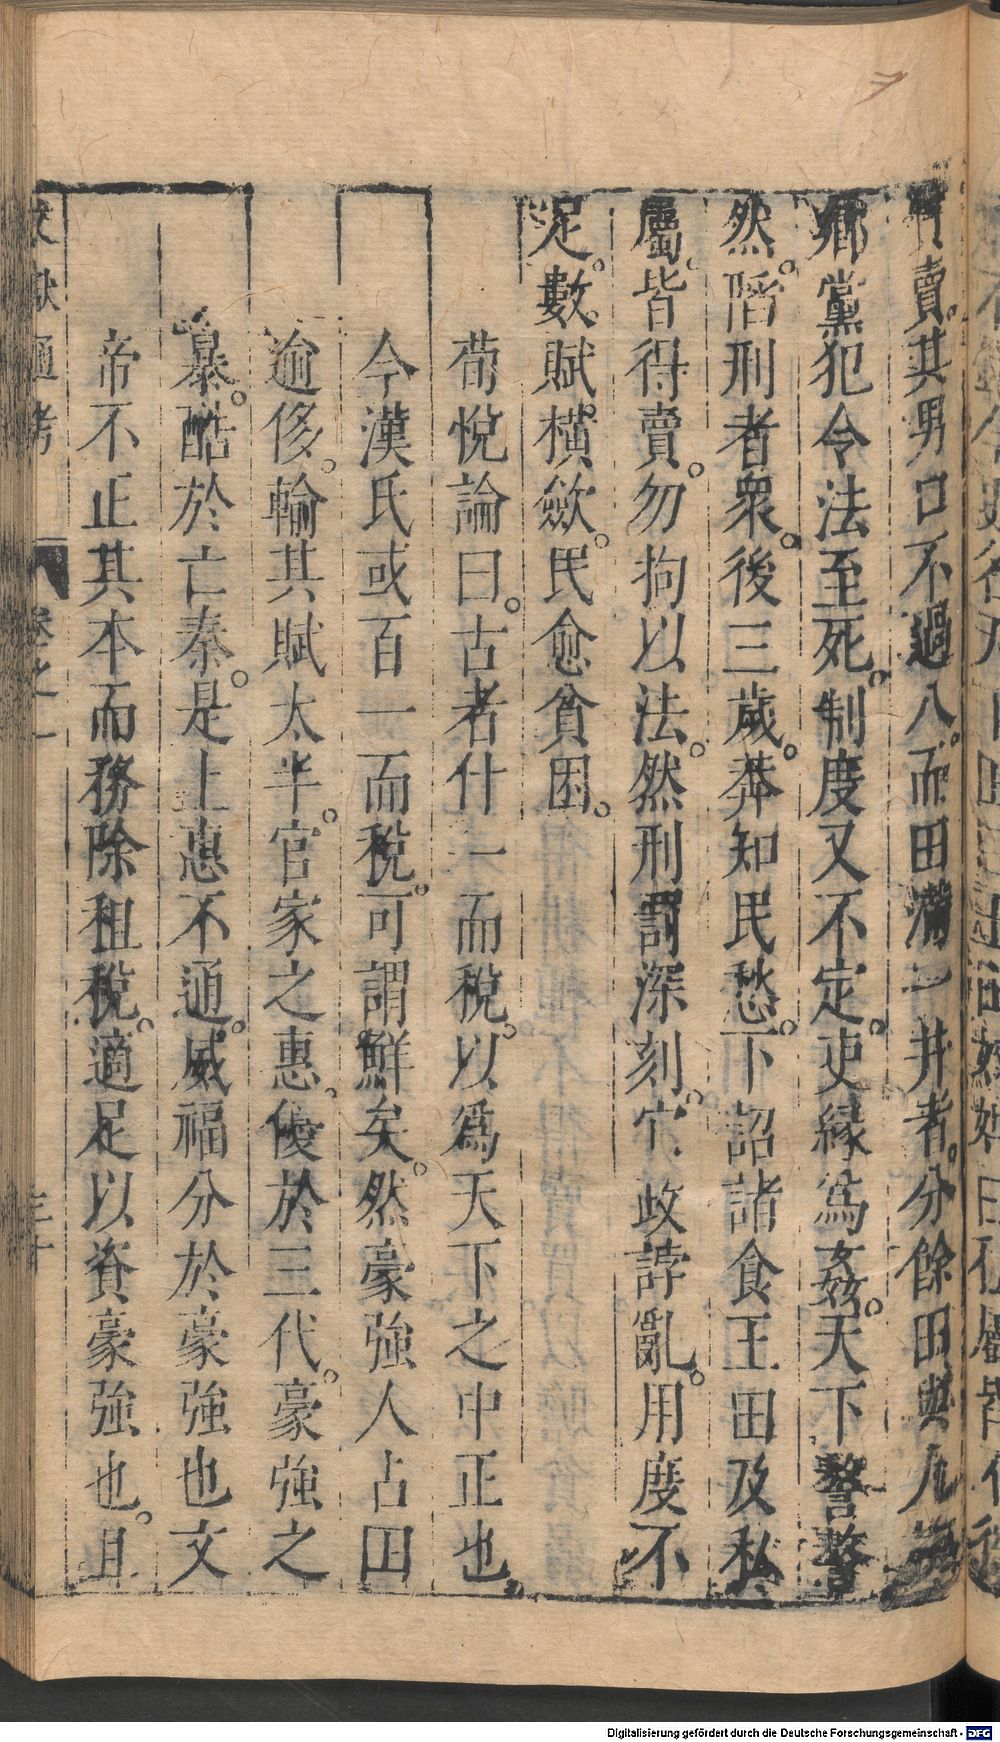 賣。其男口不過八。而田滿一井者。分餘田與九
鄉黨犯令法至死。制度又不定。吏緣爲姦。天下謷謷
然。陷刑者衆。後三歲。莽知民愁。下詔諸食王田及私
屬。皆得賣。勿拘以法。然刑罰深刻。它政誖亂。用度不
足。數賦橫斂。民愈貧困。
荀悅論曰。古者什一而稅。以爲天下之中正也。
今漢氏或百一而稅。可謂鮮矣。然豪強人占田
逾侈。輸其賦太半。官家之惠。優於三代。豪強之
暴。酷於亡秦。是上惠不通。威福分於豪強也文
帝不正其本而務除租稅。適足以資豪強也。且
文獻通考 卷之一 三十
Digitalisierung gefördert durch die Deutsche Forschungsgemeinschaft - DFG